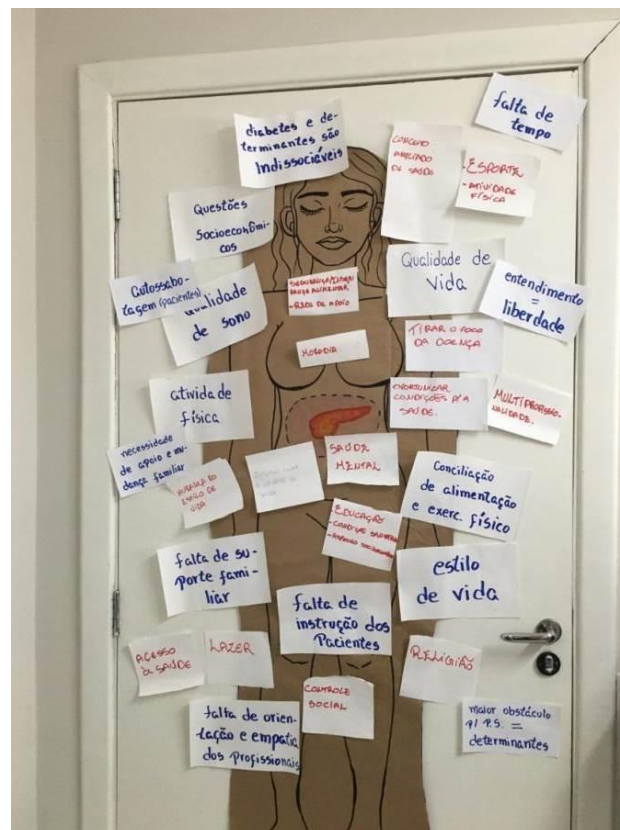 falta de
tempo
diabetes e de-
terminantes são
Indissociáveis
CONCEITO
AMPLIADO
DE SAÚDE
- ESPORTE
- ATIVIDADE
FÍSICA
Questões
Socioeconômi-
cas
Qualidade de
vida
entendimento
=
liberdade
Autossabo-
tagem (pacientes)
Qualidade
de sono
ALIMENTAR
- REDE DE APOIO
MORADIA
TIRAR O FOCO
DA DOENÇA
atividade
física
OPORTUNIZAR
CONDIÇÕES P/A
SAÚDE.
MULTIPROFISSIO-
NALIDADE.
necessidade
de apoio e mu-
dança familiar
MUDANÇA DO
ESTILO DE
VIDA
SAÚDE
MENTAL
Conciliação
de alimentação
e exerc. físico
- EDUCAÇÃO
falta de su-
porte fami-
liar
estilo
de vida
falta de
instrução dos
Pacientes
ACESSO
À SAÚDE
LAZER
RELIGIÃO
CONTROLE
SOCIAL
falta de orien-
tação e empatia
dos Profissionais
maior obstáculo
p/ P.S. =
determinantes